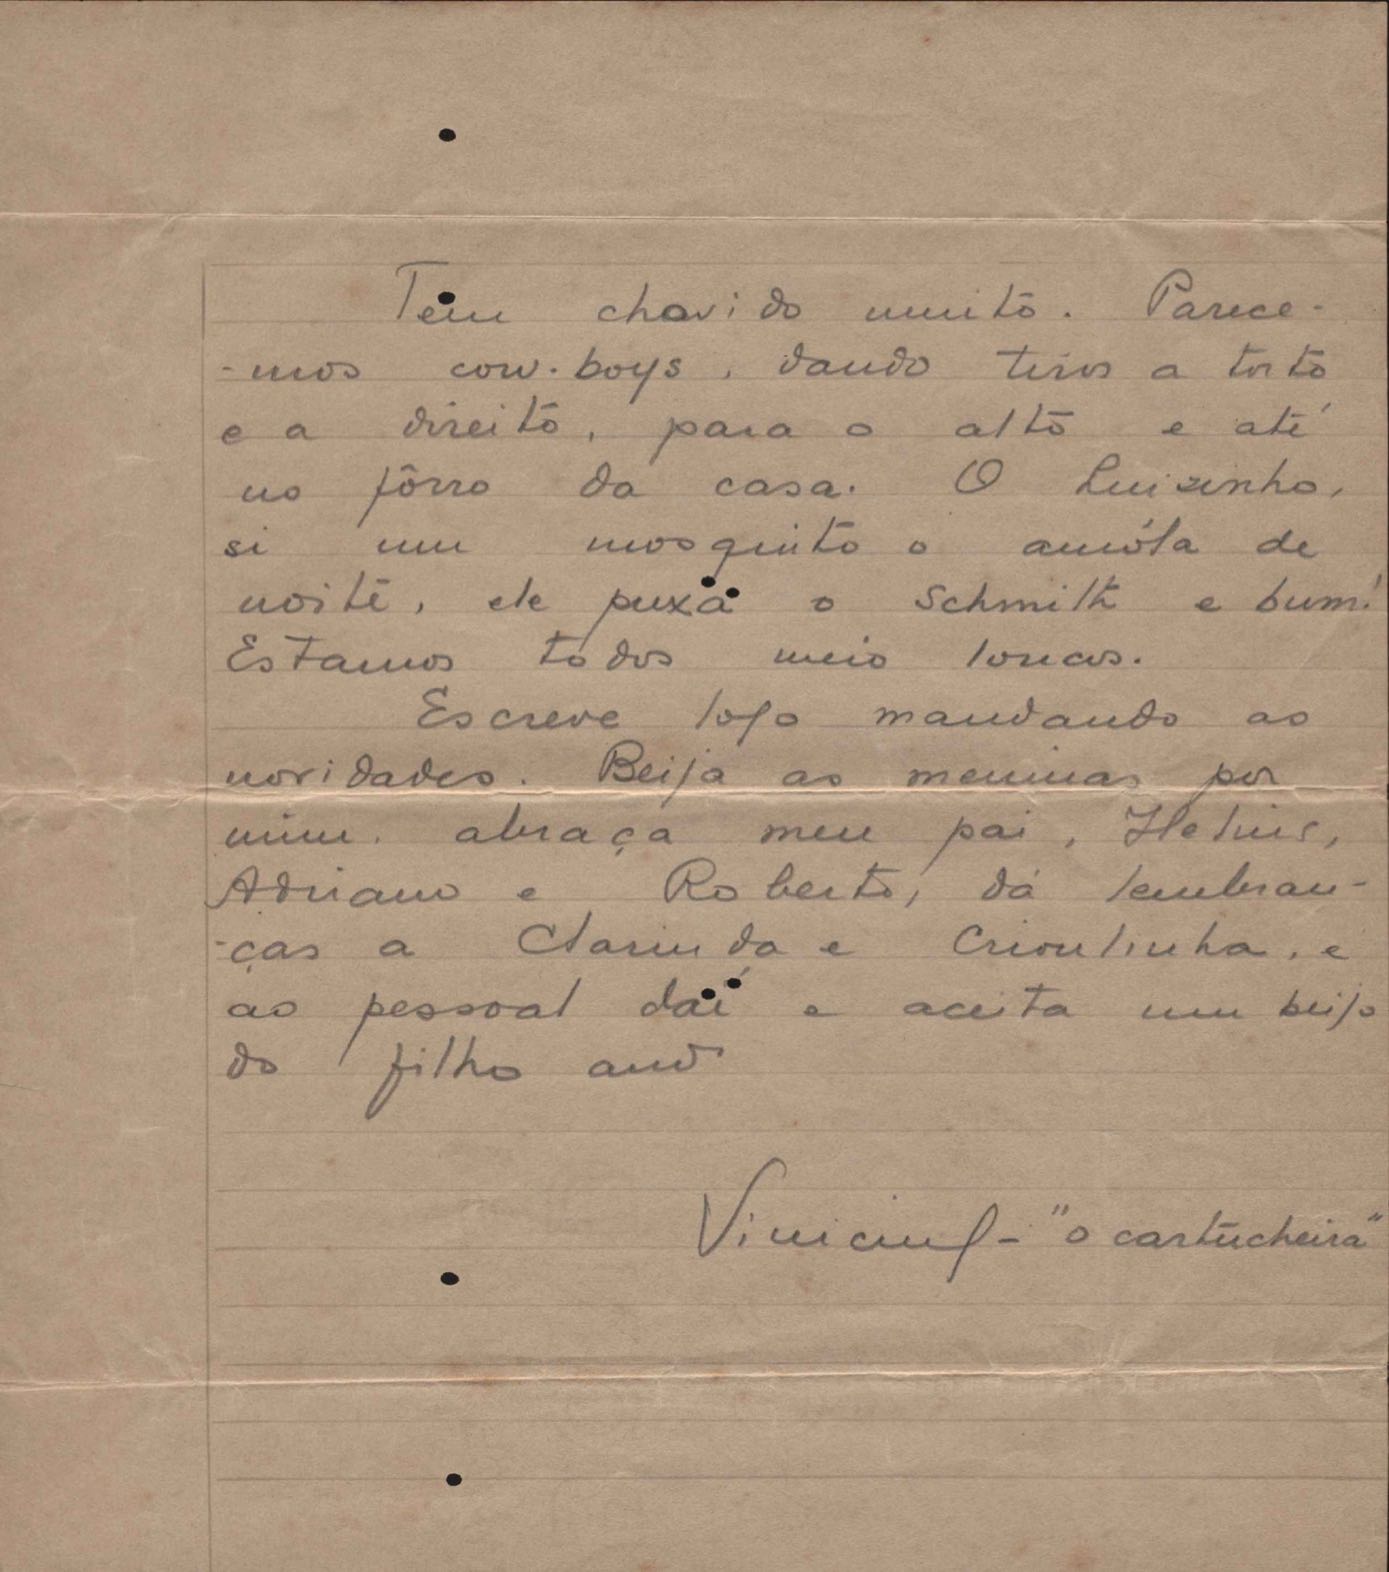 Tem chovido muito. Parece-
-mos cow-boys, dando tiros a torto
e a direito, para o alto e até
no fôrro da casa. O Luizinho,
si um mosquito o amóla de
noite, ele puxa o Schmith e bum!
Estamos todos meio loucos.
Escreve logo mandando as
novidades. Beija as meninas por
mim. abraça meu pai, Helius,
Adriano e Roberto, dá lembran-
-ças a Clarinda e Crioulinha, e
ao pessoal daí e aceita um beijo
do filho amº
Vinicius - "o cartucheira"